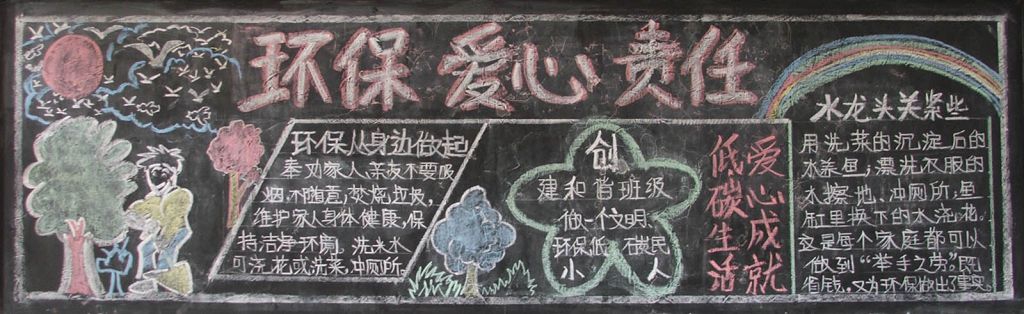 环保 爱心 责任
环保从身边做起
奉劝家人、亲友不要吸
烟,不随意焚烧垃圾,
维护家人身体健康,保
持洁净环境。洗米水
可浇花或洗菜,冲厕所。
创
建和谐班级
做一个文明、
环保低碳
小人
低碳生活
爱心成就
水龙头关紧些
用洗菜的沉淀后的
水养鱼,漂洗衣服的
水擦地、冲厕所,鱼
缸里换下的水浇花。
这是每个家庭都可以
做到“举手之劳”。既
省钱,又为环保做出了事实。